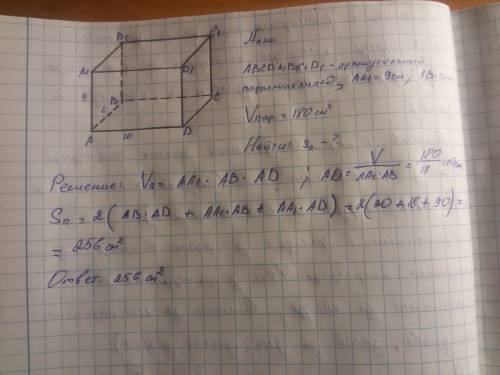 B₁ C₁
A₁ D₁
Дано:
ABCDA₁B₁C₁D₁ - прямоугольный
параллелепипед, AA₁ = 9см, AB = 2см
9
2 B C
Vпар = 180 см³
A 10 D
Найти: Sп - ?
Решение: Vп = AA₁ · AB · AD , AD = V / AA₁·AB = 180 / 18 = 10см
Sп = 2( AB·AD + AA₁·AB + AA₁·AD) = 2(20+18+90) =
= 256 см²
Ответ: 256 см².